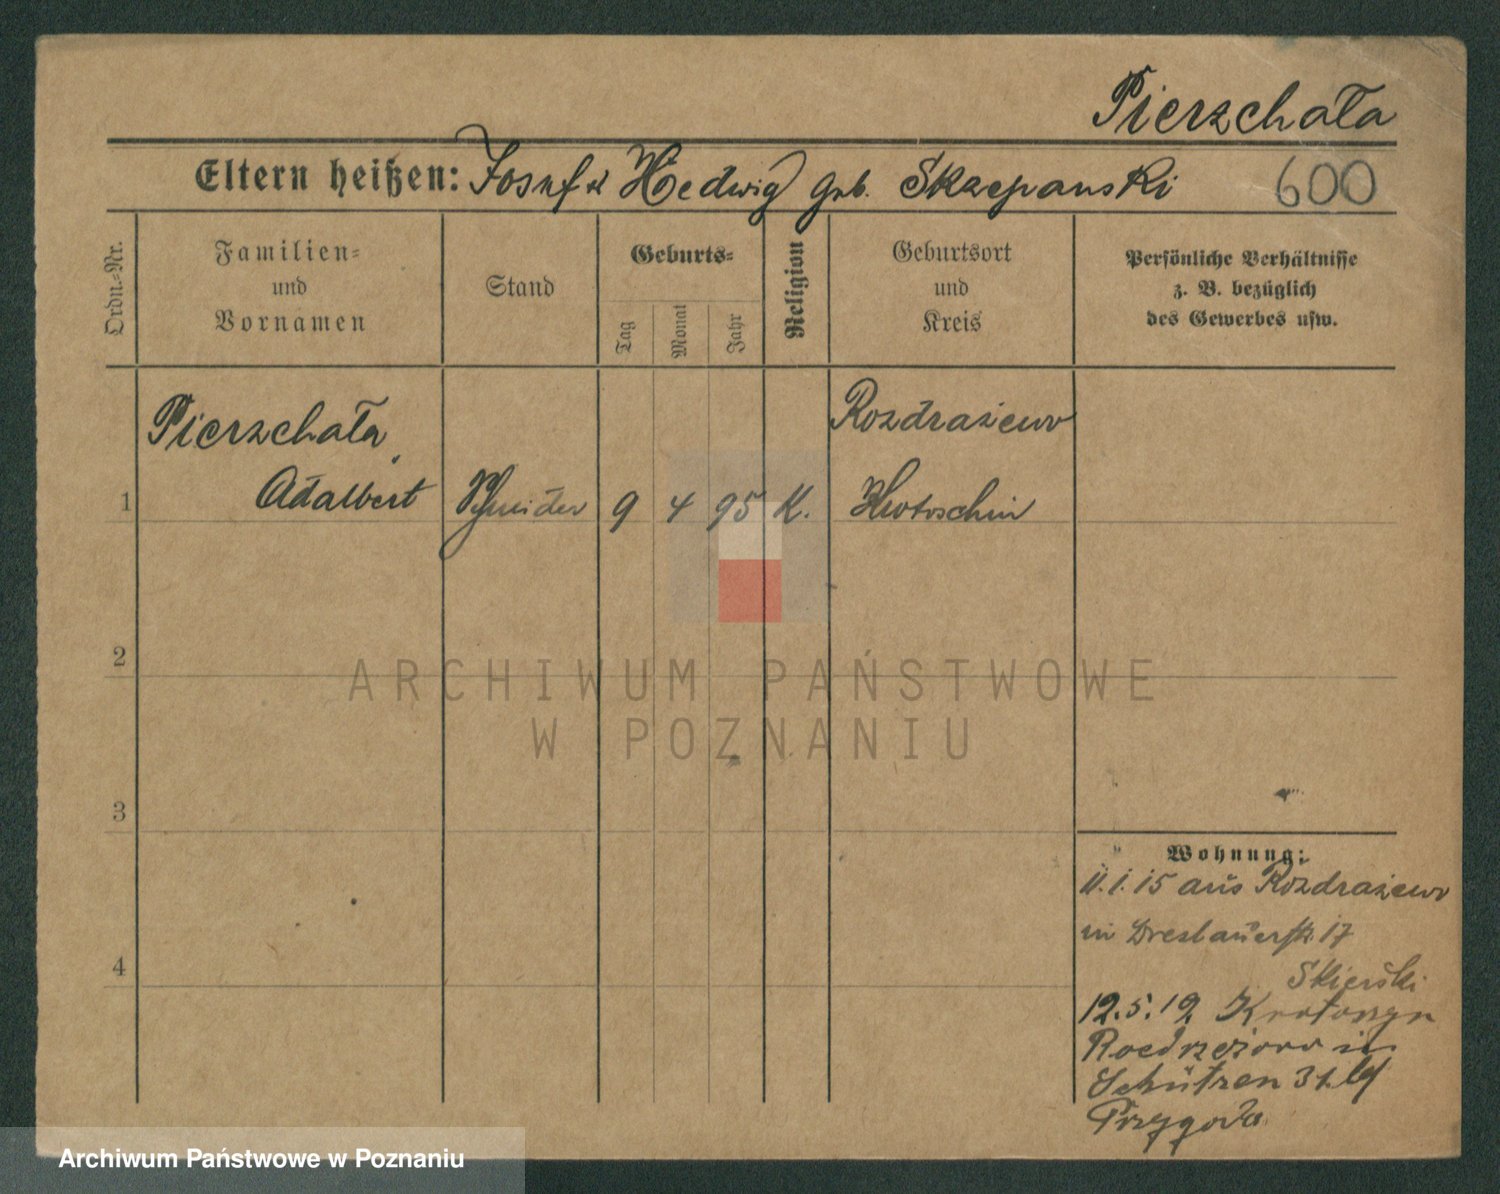 Pierzchała
Eltern heißen: Josef u Hedwig geb. Skrzepanski 600
Ordn.-Nr.
Familien-
und
Vornamen
Stand
Geburts-
Tag
Monat
Jahr
Religion
Geburtsort
und
Kreis
Persönliche Verhältnisse
z. B. bezüglich
des Gewerbes usw.
Pierzchała,
Rozdrażewo
1 Adalbert Schneider 9 4 95 K. Krotoschin
2
3
4
ARCHIWUM PAŃSTWOWE
W POZNANIU
Wohnung:
11.1.15 aus Rozdrażewo
in Breslauerstr. 17
Skierski
12.5.19. Krotoszyn
in
Schützen 31
Przygoda
Archiwum Państwowe w Poznaniu